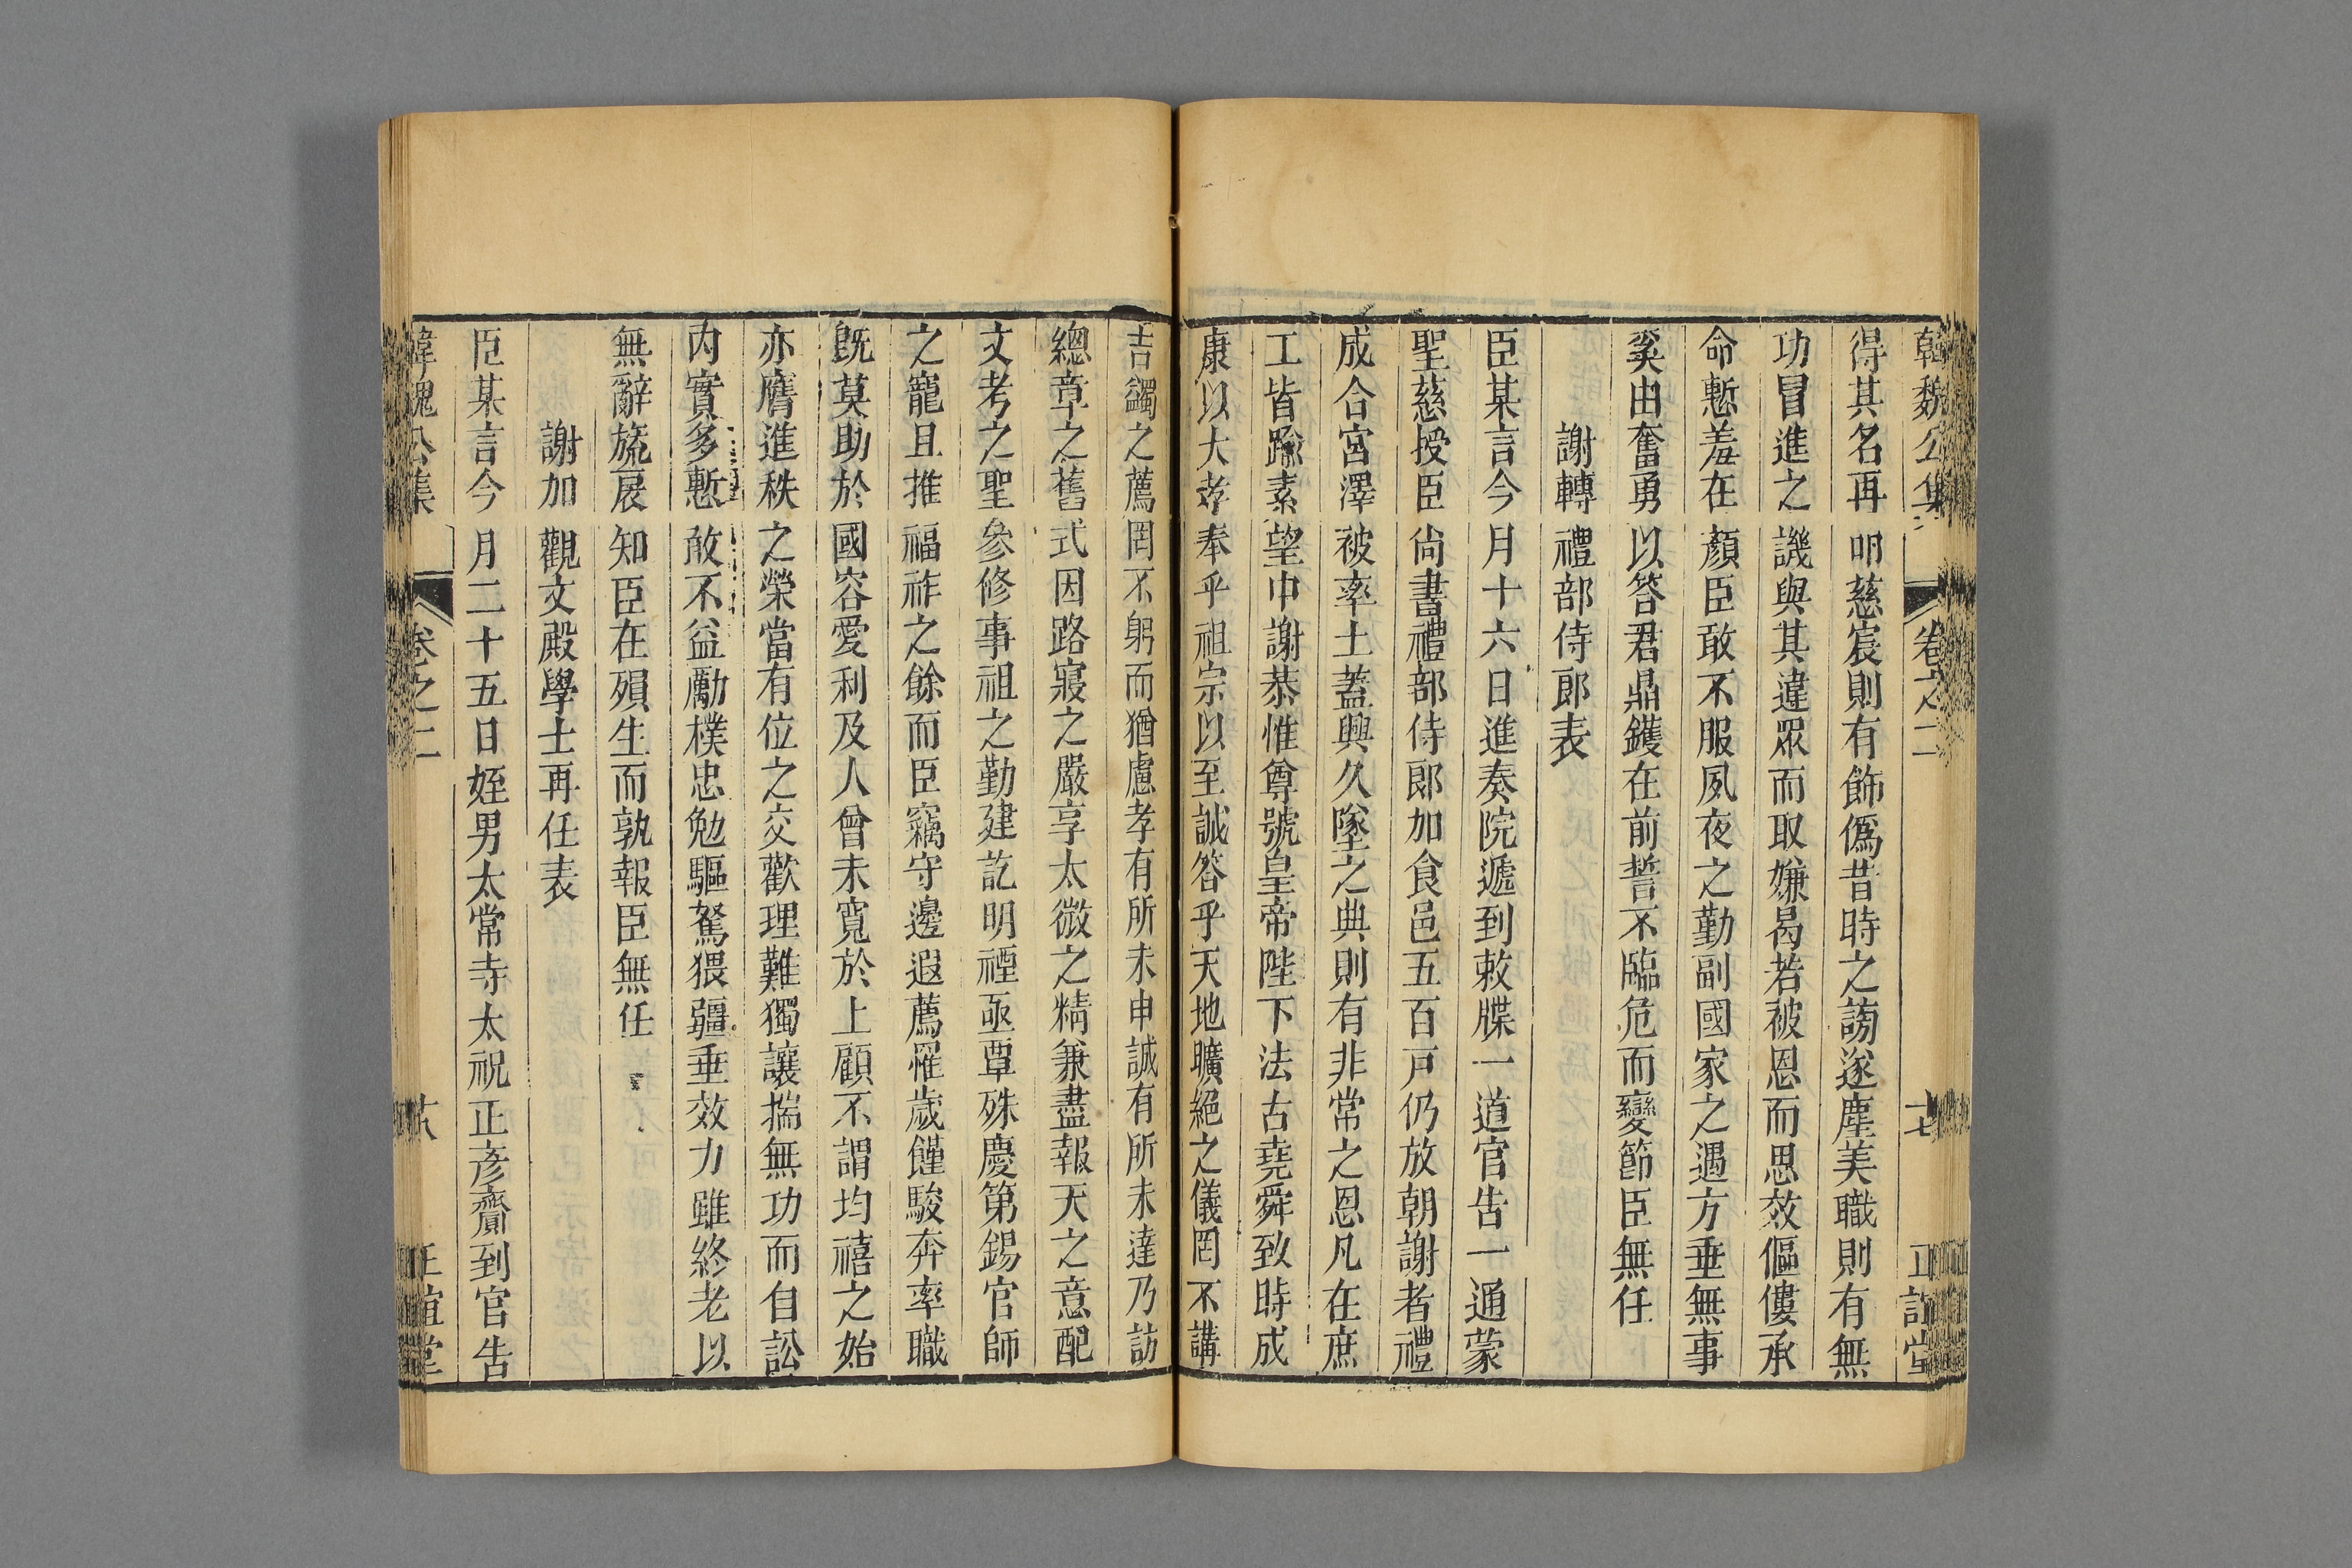 韓魏公集 卷之二 十七 正誼堂
得其名再明慈宸則有飾僞昔時之謗遂塵美職則有無
功冒進之譏與其違眾而取嫌曷若被恩而思效傴僂承
命慙羞在顏臣敢不服夙夜之勤副國家之遇方垂無事
奚由奮勇以答君鼎鑊在前誓不臨危而變節臣無任
謝轉禮部侍郎表
臣某言今月十六日進奏院遞到敕牒一道官告一通蒙
聖慈授臣尙書禮部侍郎加食邑五百戸仍放朝謝者禮
成合宮澤被率土蓋興久墜之典則有非常之恩凡在庶
工皆踰素望中謝恭惟尊號皇帝陛下法古堯舜致時成
康以大孝奉乎祖宗以至誠答乎天地曠絕之儀罔不講
吉蠲之薦罔不躬而猶慮孝有所未申誠有所未達乃訪
總章之舊式因路寢之嚴享太微之精兼盡報天之意配
文考之聖參修事祖之勤建訖明禋亟覃殊慶第錫官師
之寵且推福祚之餘而臣竊守邊遐薦罹歲饉駿奔率職
旣莫助於國容愛利及人曾未寬於上顧不謂均禧之始
亦膺進秩之榮當有位之交歡理難獨讓揣無功而自訟
內實多慙敢不益勵樸忠勉驅駑猥疆垂效力雖終老以
無辭旒扆知臣在殞生而孰報臣無任
謝加觀文殿學士再任表
臣某言今月二十五日姪男太常寺太祝正彥齎到官告
韓魏公集 卷之二 十八 正誼堂